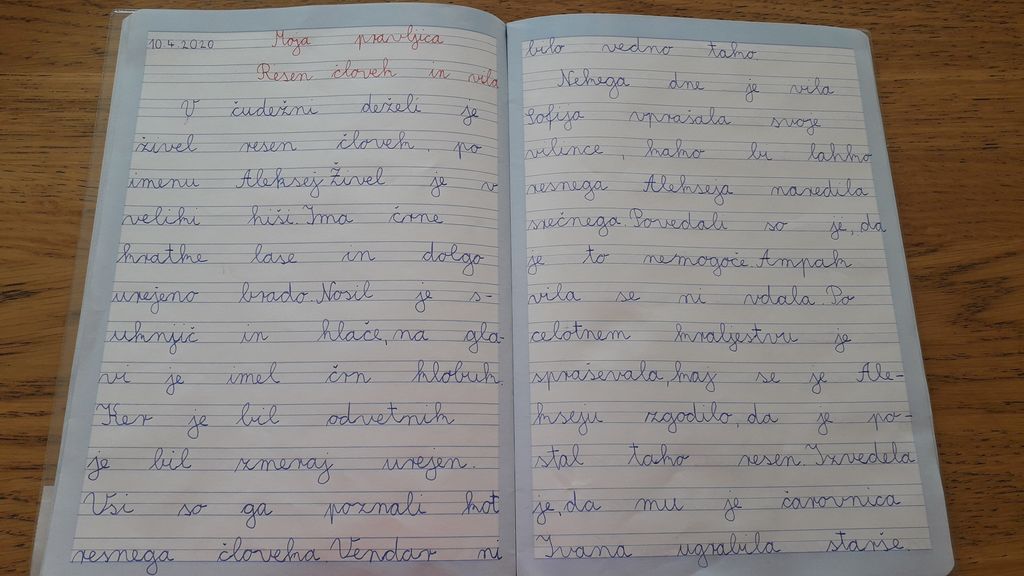 10.4.2020 Moja pravljica
Resen človek in vila
V čudežni deželi je
živel resen človek, po
imenu Aleksej. Živel je v
veliki hiši. Ima črne
kratke lase in dolgo
urejeno brado. Nosil je s-
uknjič in hlače, na gla-
vi je imel črn klobuk.
Ker je bil odvetnik
je bil zmeraj urejen.
Vsi so ga poznali kot
resnega človeka. Vendar ni
bilo vedno tako.
Nekega dne je vila
Sofija vprašala svoje
vilince, kako bi lahko
resnega Alekseja naredila
srečnega. Povedali so je, da
je to nemogoče. Ampak
vila se ni vdala. Po
celotnem kraljestvu je
spraševala, kaj se je Ale-
kseju zgodilo, da je po-
stal tako resen. Izvedela
je, da mu je čarovnica
Ivana ugrabila starše.